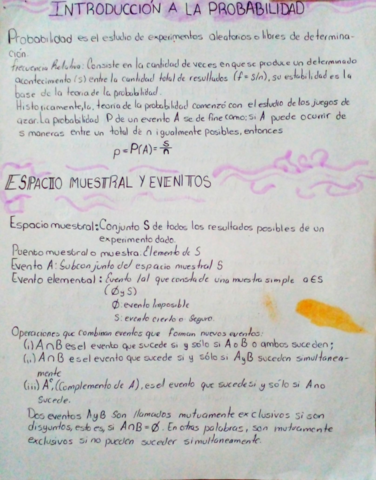 INTRODUCCIÓN A LA PROBABILIDAD
Probabilidad es el estudio de experimentos aleatorios o libres de determina-
ción.
frecuencia Relativa: Consiste en la cantidad de veces en que se produce un determinado
acontecimiento (s) entre la cantidad total de resultados (f = s/n), su estabilidad es la
base de la teoría de la probabilidad.
Históricamente, la teoría de la probabilidad comenzó con el estudio de los juegos de
azar. La probabilidad P de un evento A se define como: si A puede ocurrir de
s maneras entre un total de n igualmente posibles, entonces
p = P(A) = s/n
ESPACIO MUESTRAL Y EVENTOS
Espacio muestral: Conjunto S de todos los resultados posibles de un
experimento dado.
Punto muestral o muestra: Elemento de S
Evento A: Subconjunto del espacio muestral S
Evento elemental: Evento tal que consta de una muestra simple a∈S
(∅ y S)
∅: evento Imposible
S: evento cierto o Seguro.
Operaciones que combinan eventos que forman nuevos eventos:
(i) A∩B es el evento que sucede si y sólo si A o B o ambos suceden;
(ii) A∩B es el evento que sucede si y sólo si A y B suceden simultanea-
mente
(iii) Aᶜ, (Complemento de A), es el evento que sucede si y sólo si A no
sucede.
Dos eventos A y B son llamados mutuamente exclusivos si son
disyuntos, esto es, si A∩B = ∅. En otras palabras, son mutuamente
exclusivos si no pueden suceder simultaneamente.